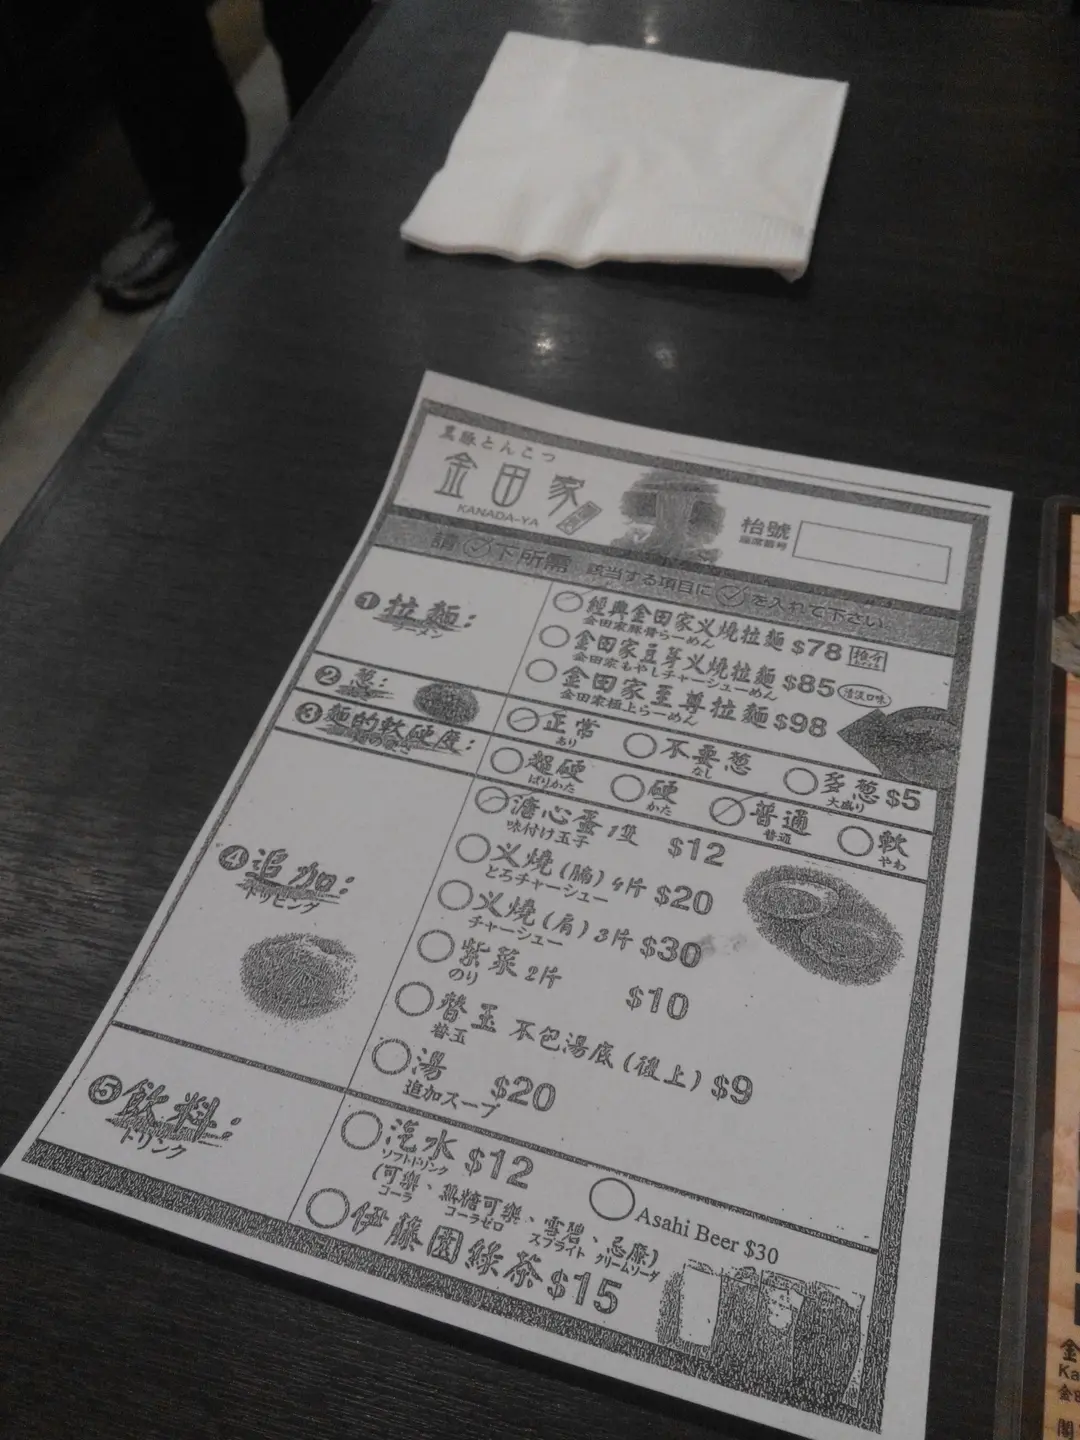 黒豚とんこつ
金田家
KANADA-YA
枱號
座席番号
請 下所需 該当する項目に を入れて下さい
❶拉麵:
ラーメン
經典金田家叉燒拉麵 $78 推介
金田家豚骨らーめん
金田家豆芽叉燒拉麵 $85 清淡口味
金田家もやしチャーシューめん
金田家至尊拉麵 $98
金田家極上らーめん
❷葱:
正常 不要葱 多葱 $5
あり なし 大盛り
❸麵的軟硬度:
超硬 硬 普通 軟
ばりかた かた 普通 やわ
❹追加:
トッピング
溏心蛋 1隻 $12
味付け玉子
叉燒(腩)4片 $20
とろチャーシュー
叉燒(肩)3片 $30
チャーシュー
紫菜 2片 $10
のり
替玉 不包湯底(後上) $9
替玉
湯 $20
追加スープ
❺飲料:
ドリンク
汽水 $12
ソフトドリンク
(可樂、無糖可樂、雪碧、忌廉)
コーラ コーラゼロ スプライト クリームソーダ
Asahi Beer $30
伊藤園綠茶 $15
金
Ka
金田